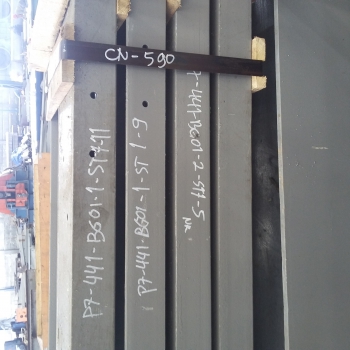 CN-590
P7-441-B601-1-ST7-11
P7-441-B601-1-ST1-9
7-441-B601-2-ST1-5
NR